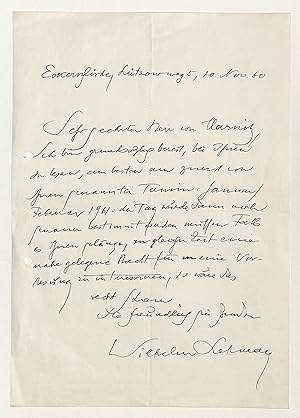 Eckernförde, Lützowweg 5, 20 Nov 60
Sehr geehrter Herr von
Ich bin grundsätzlich bereit, bei Ihnen
zu lesen, am besten am zuerst von
Ihnen genannten Termin: Januar
Februar 1961. der Tag würde dann noch
genauer bestimmt werden müssen. Falls
es Ihnen gelänge, zur gleichen Zeit eine
nahe gelegene Stadt für eine Vor-
lesung zu interessieren, so wäre dies
recht schön.
Mit freundlichen Grüssen
Wilhelm Lehmann